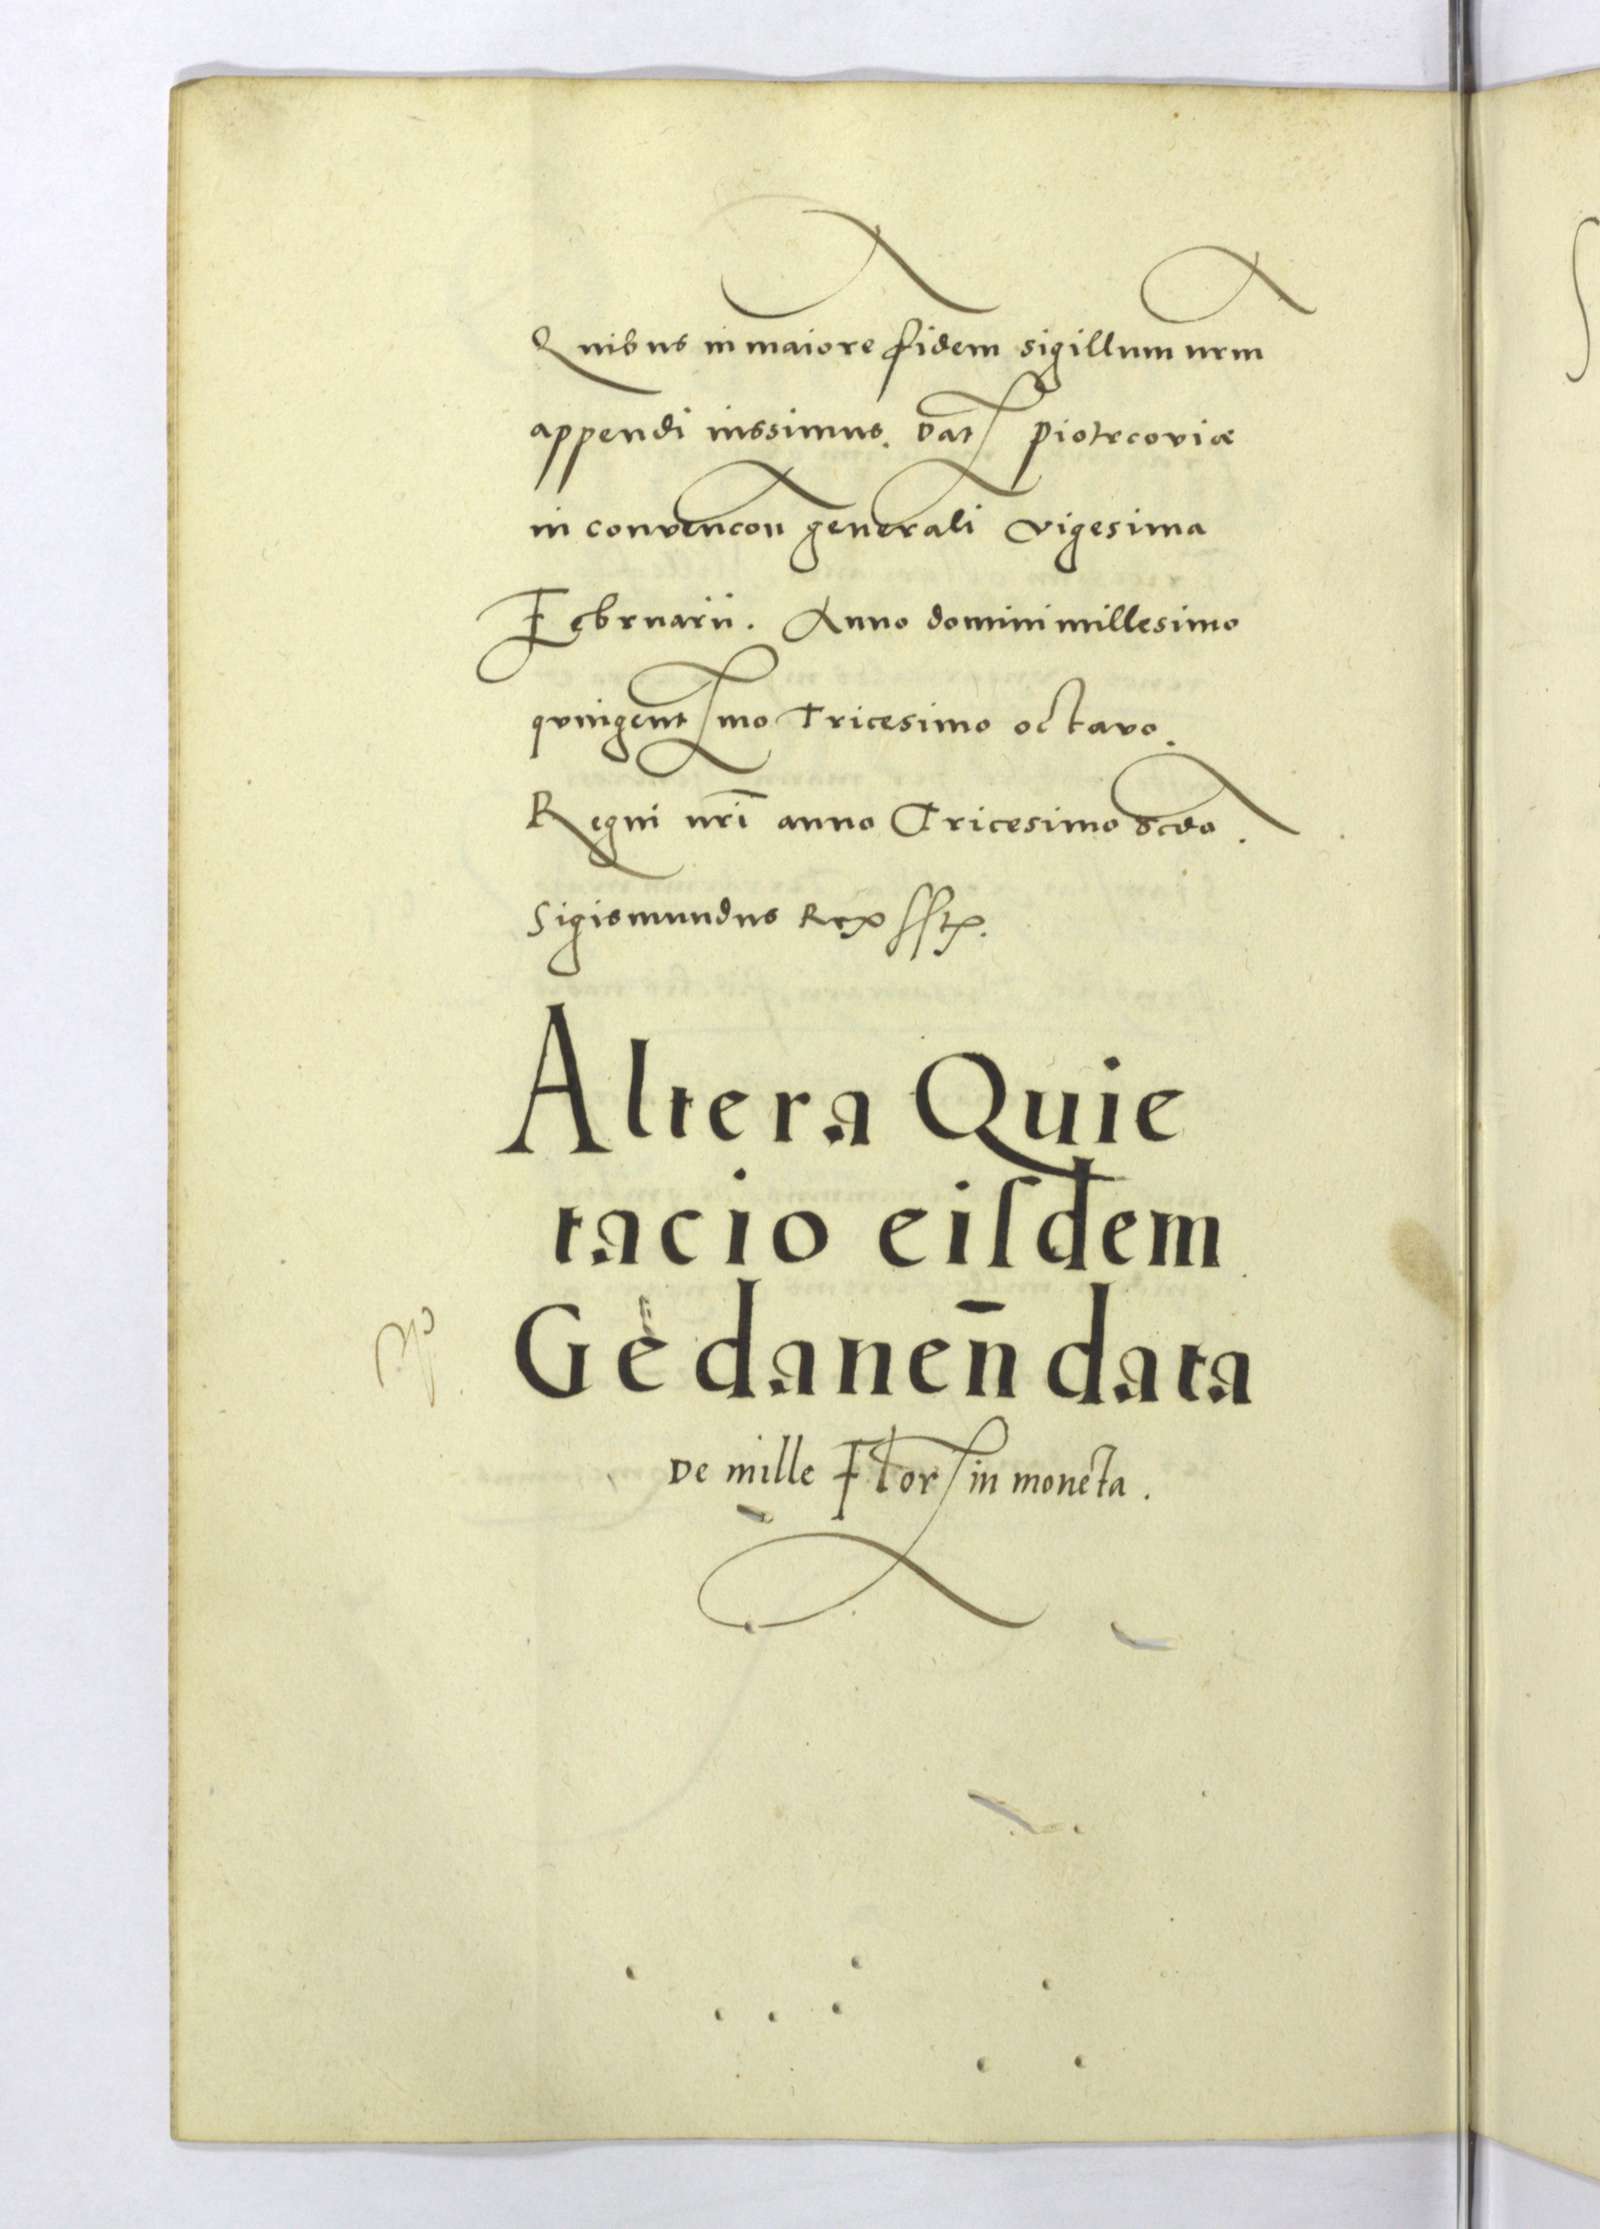 Quibus in maiore fidem sigillum nrm
appendi iussimus. Dat Piotrcoviæ
in convencon generali vigesima
Februarii. Anno domini millesimo
quingentmo Tricesimo octavo.
Regni nri̅ anno Tricesimo scdo.
Sigismundus Rex sst.
Altera Quie
tacio eiſdem
Gedanen̅ data
De mille Flor in moneta.